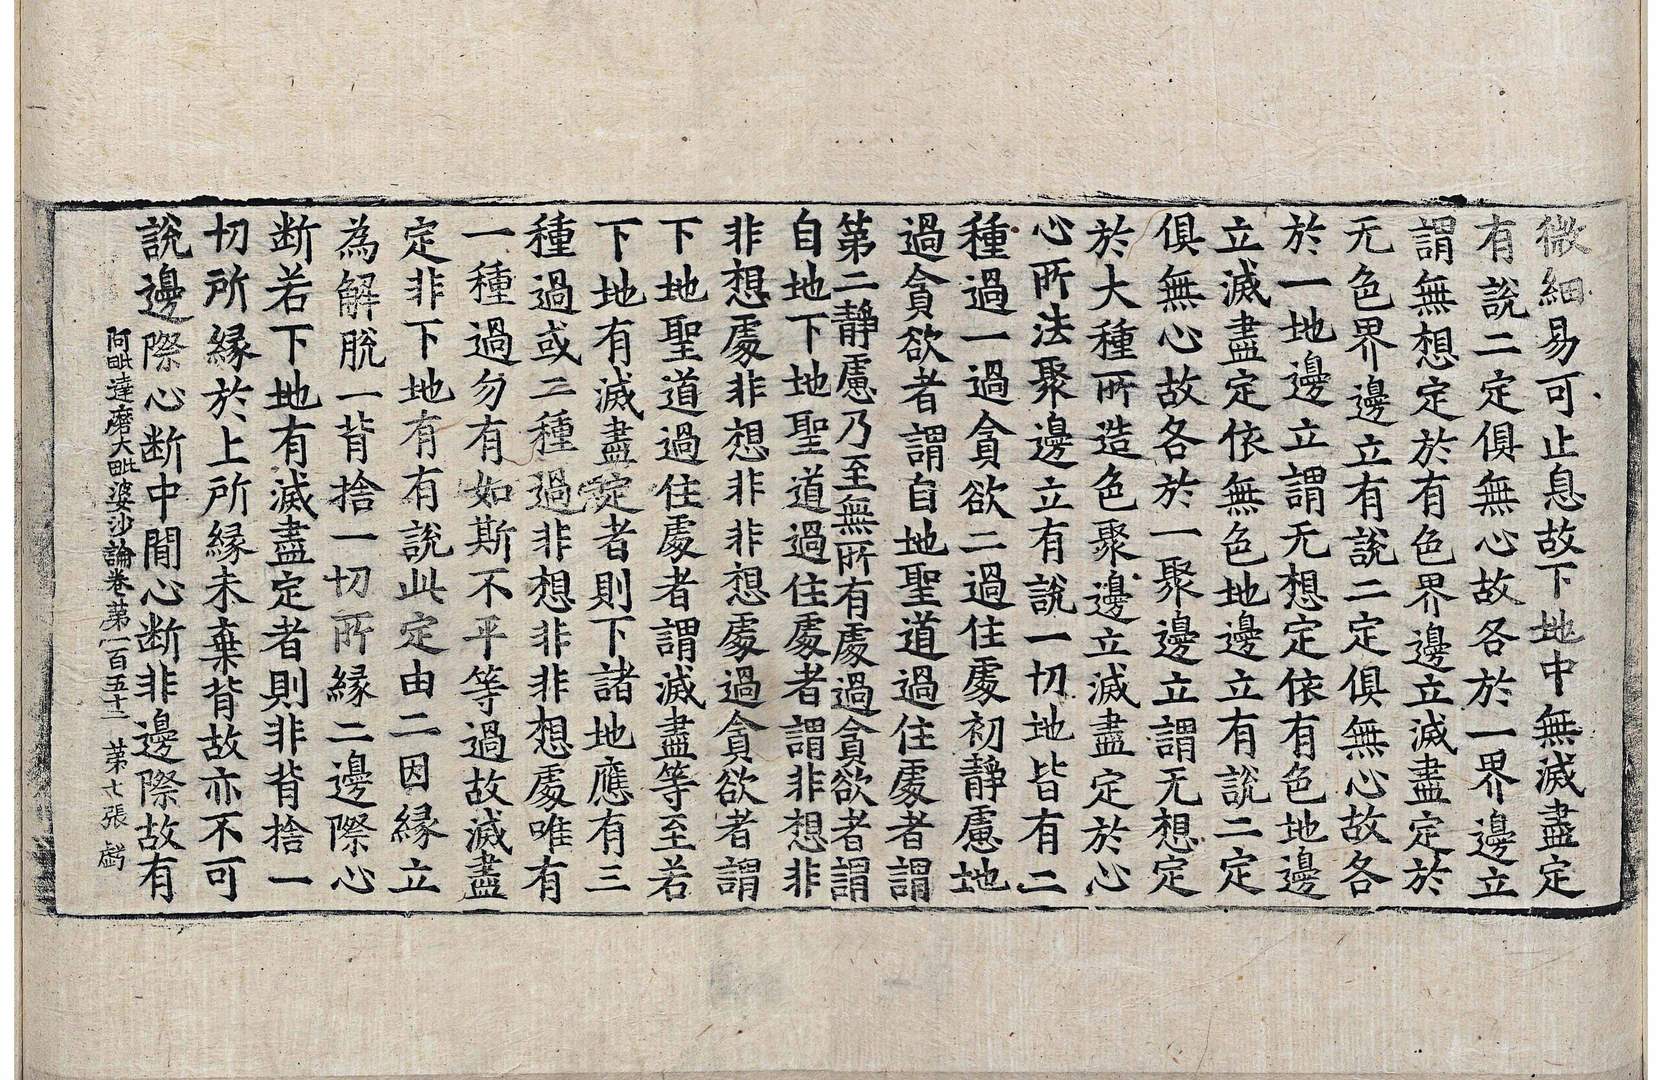 微細易可止息故下地中無滅盡定
有說二定俱無心故各於一界邊立
謂無想定於有色界邊立滅盡定於
无色界邊立有說二定俱無心故各
於一地邊立謂无想定依有色地邊
立滅盡定依無色地邊立有說二定
俱無心故各於一聚邊立謂无想定
於大種所造色聚邊立滅盡定於心
心所法聚邊立有說一切地皆有二
種過一過貪欲二過住處初靜慮地
過貪欲者謂自地聖道過住處者謂
第二靜慮乃至無所有處過貪欲者謂
自地下地聖道過住處者謂非想非
非想處非想非非想處過貪欲者謂
下地聖道過住處者謂滅盡等至若
下地有滅盡定者則下諸地應有三
種過或二種過非想非非想處唯有
一種過勿有如斯不平等過故滅盡
定非下地有有說此定由二因緣立
為解脫一背捨一切所緣二邊際心
断若下地有滅盡定者則非背捨一
切所緣於上所緣未棄背故亦不可
說邊際心断中間心断非邊際故有
阿毗達磨大毗婆沙論卷第一百五十二 第七張 虧